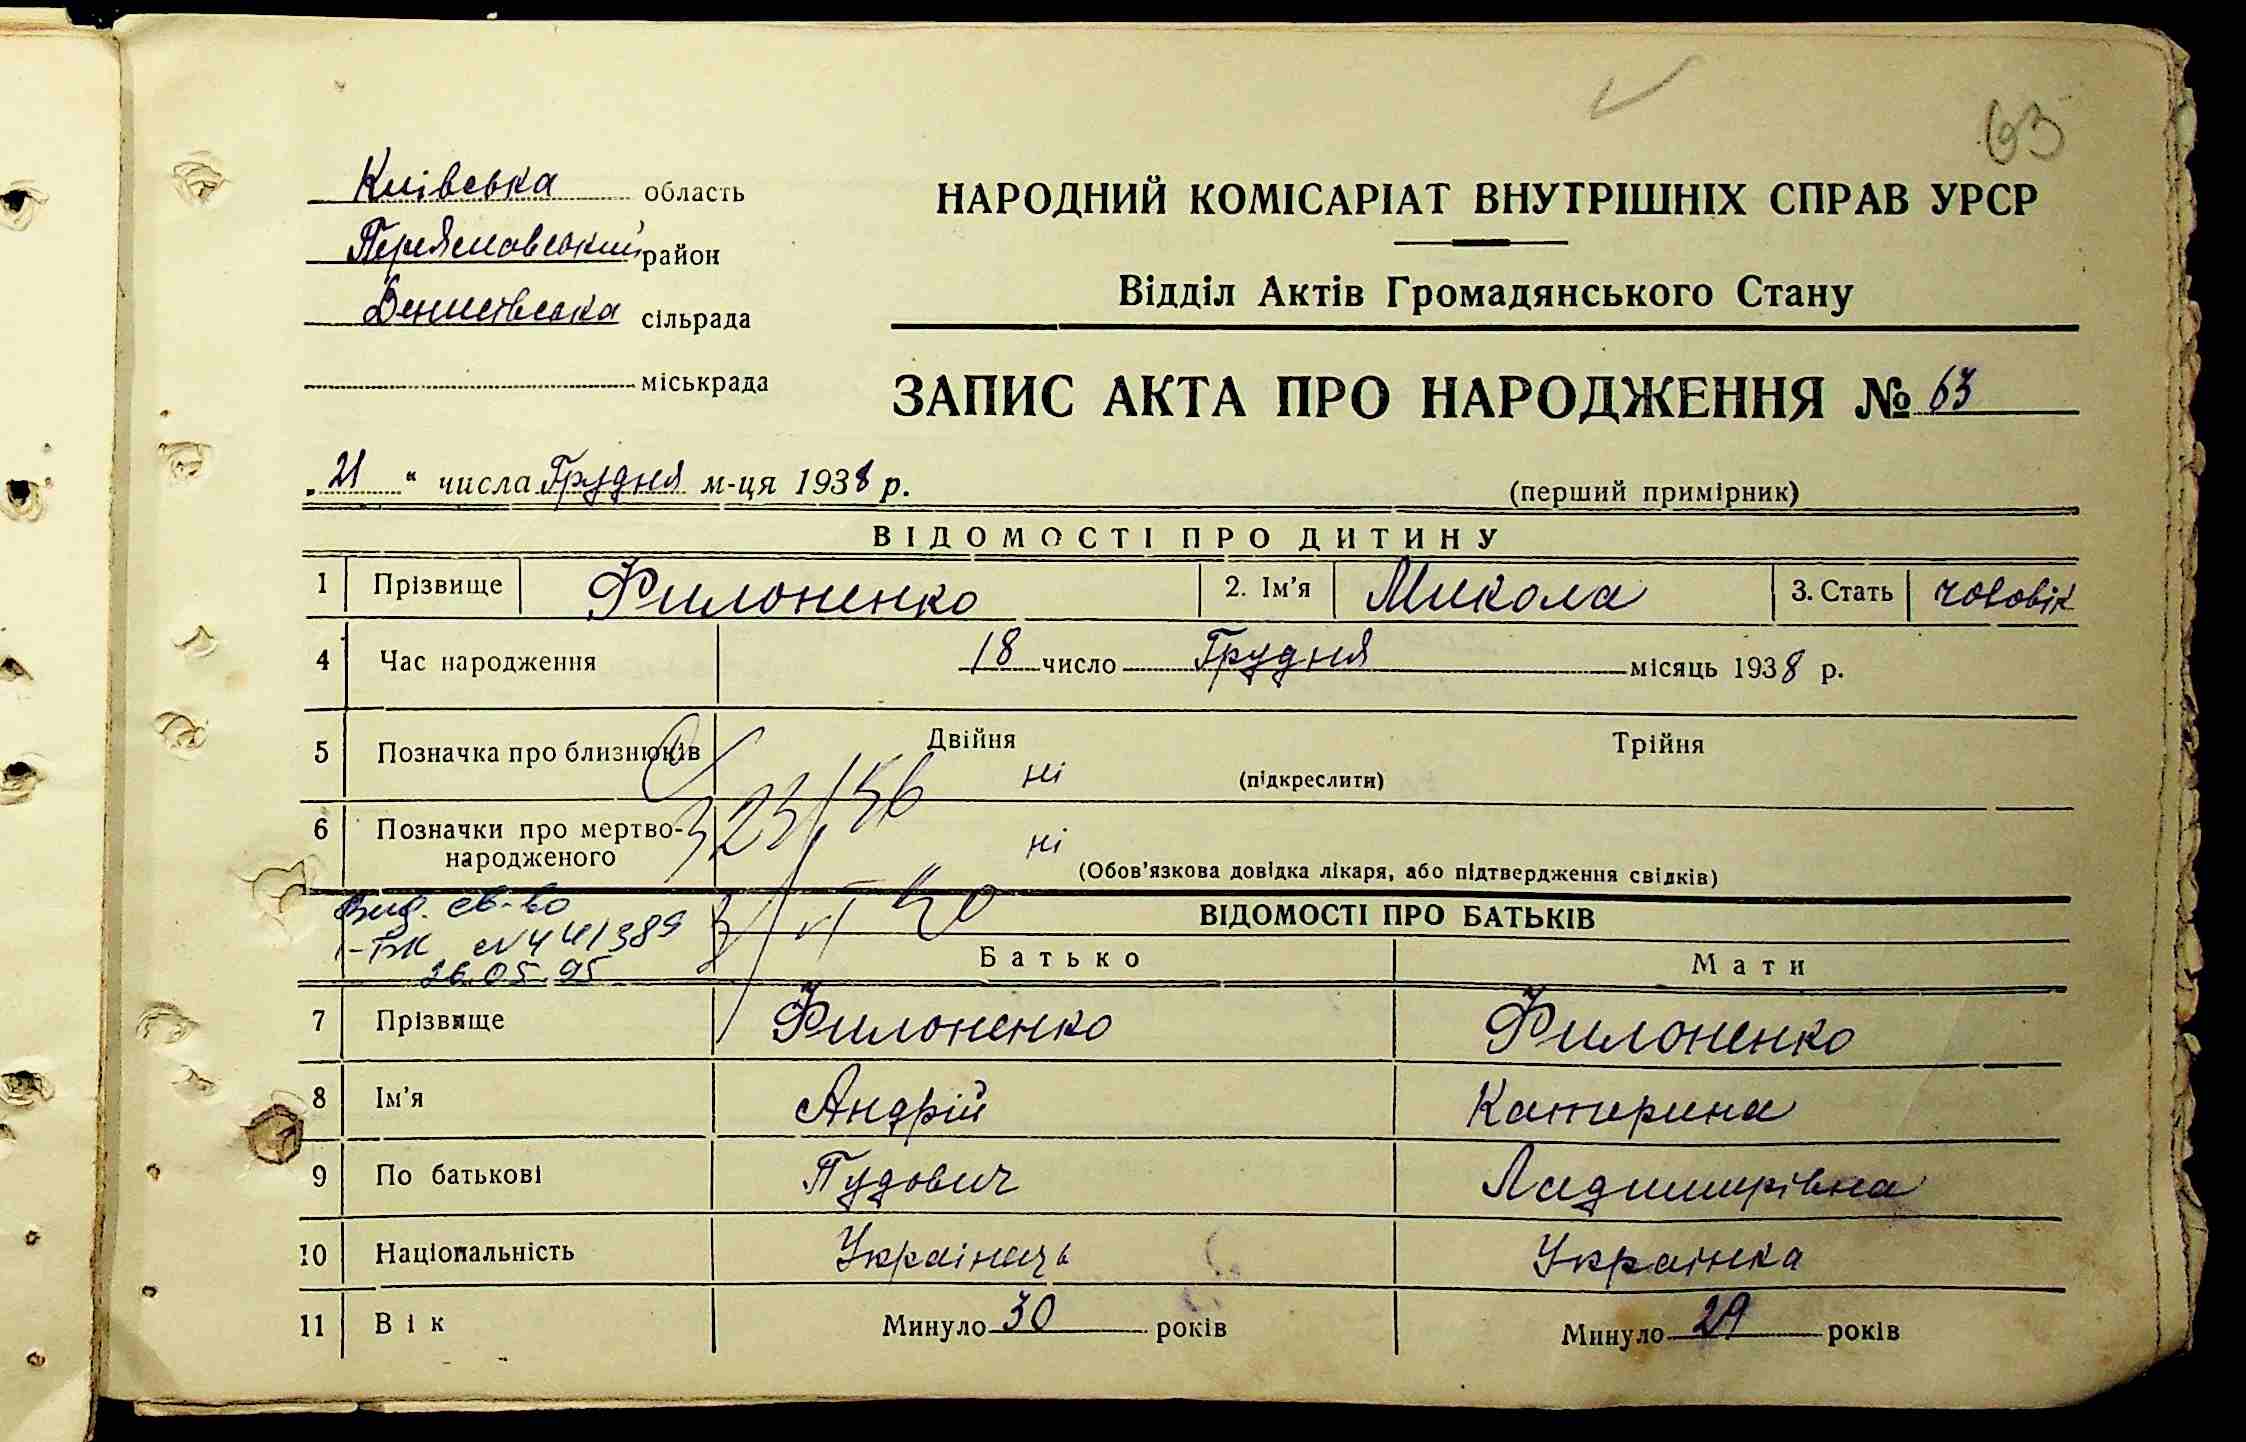 63
Київська область
НАРОДНИЙ КОМІСАРІАТ ВНУТРІШНІХ СПРАВ УРСР
Переяславський район
Відділ Актів Громадянського Стану
Денисівська сільрада
міськрада
ЗАПИС АКТА ПРО НАРОДЖЕННЯ № 63
„21“ числа Грудня м-ця 1938 р.
(перший примірник)
ВІДОМОСТІ ПРО ДИТИНУ
1 Прізвище Филоненко 2. Ім'я Микола 3. Стать чоловік
4 Час народження 18 число Грудня місяць 1938 р.
5 Позначка про близнюків Двійня Трійня
ні (підкреслити)
6 Позначки про мертво-
народженого ні
(Обов'язкова довідка лікаря, або підтвердження свідків)
Вид. св-во
I-БК №441389
26.05.95
ВІДОМОСТІ ПРО БАТЬКІВ
Батько Мати
7 Прізвище Филоненко Филоненко
8 Ім'я Андрій Катерина
9 По батькові Пудович Ладимирівна
10 Національність Українець Українка
11 Вік Минуло 30 років Минуло 29 років